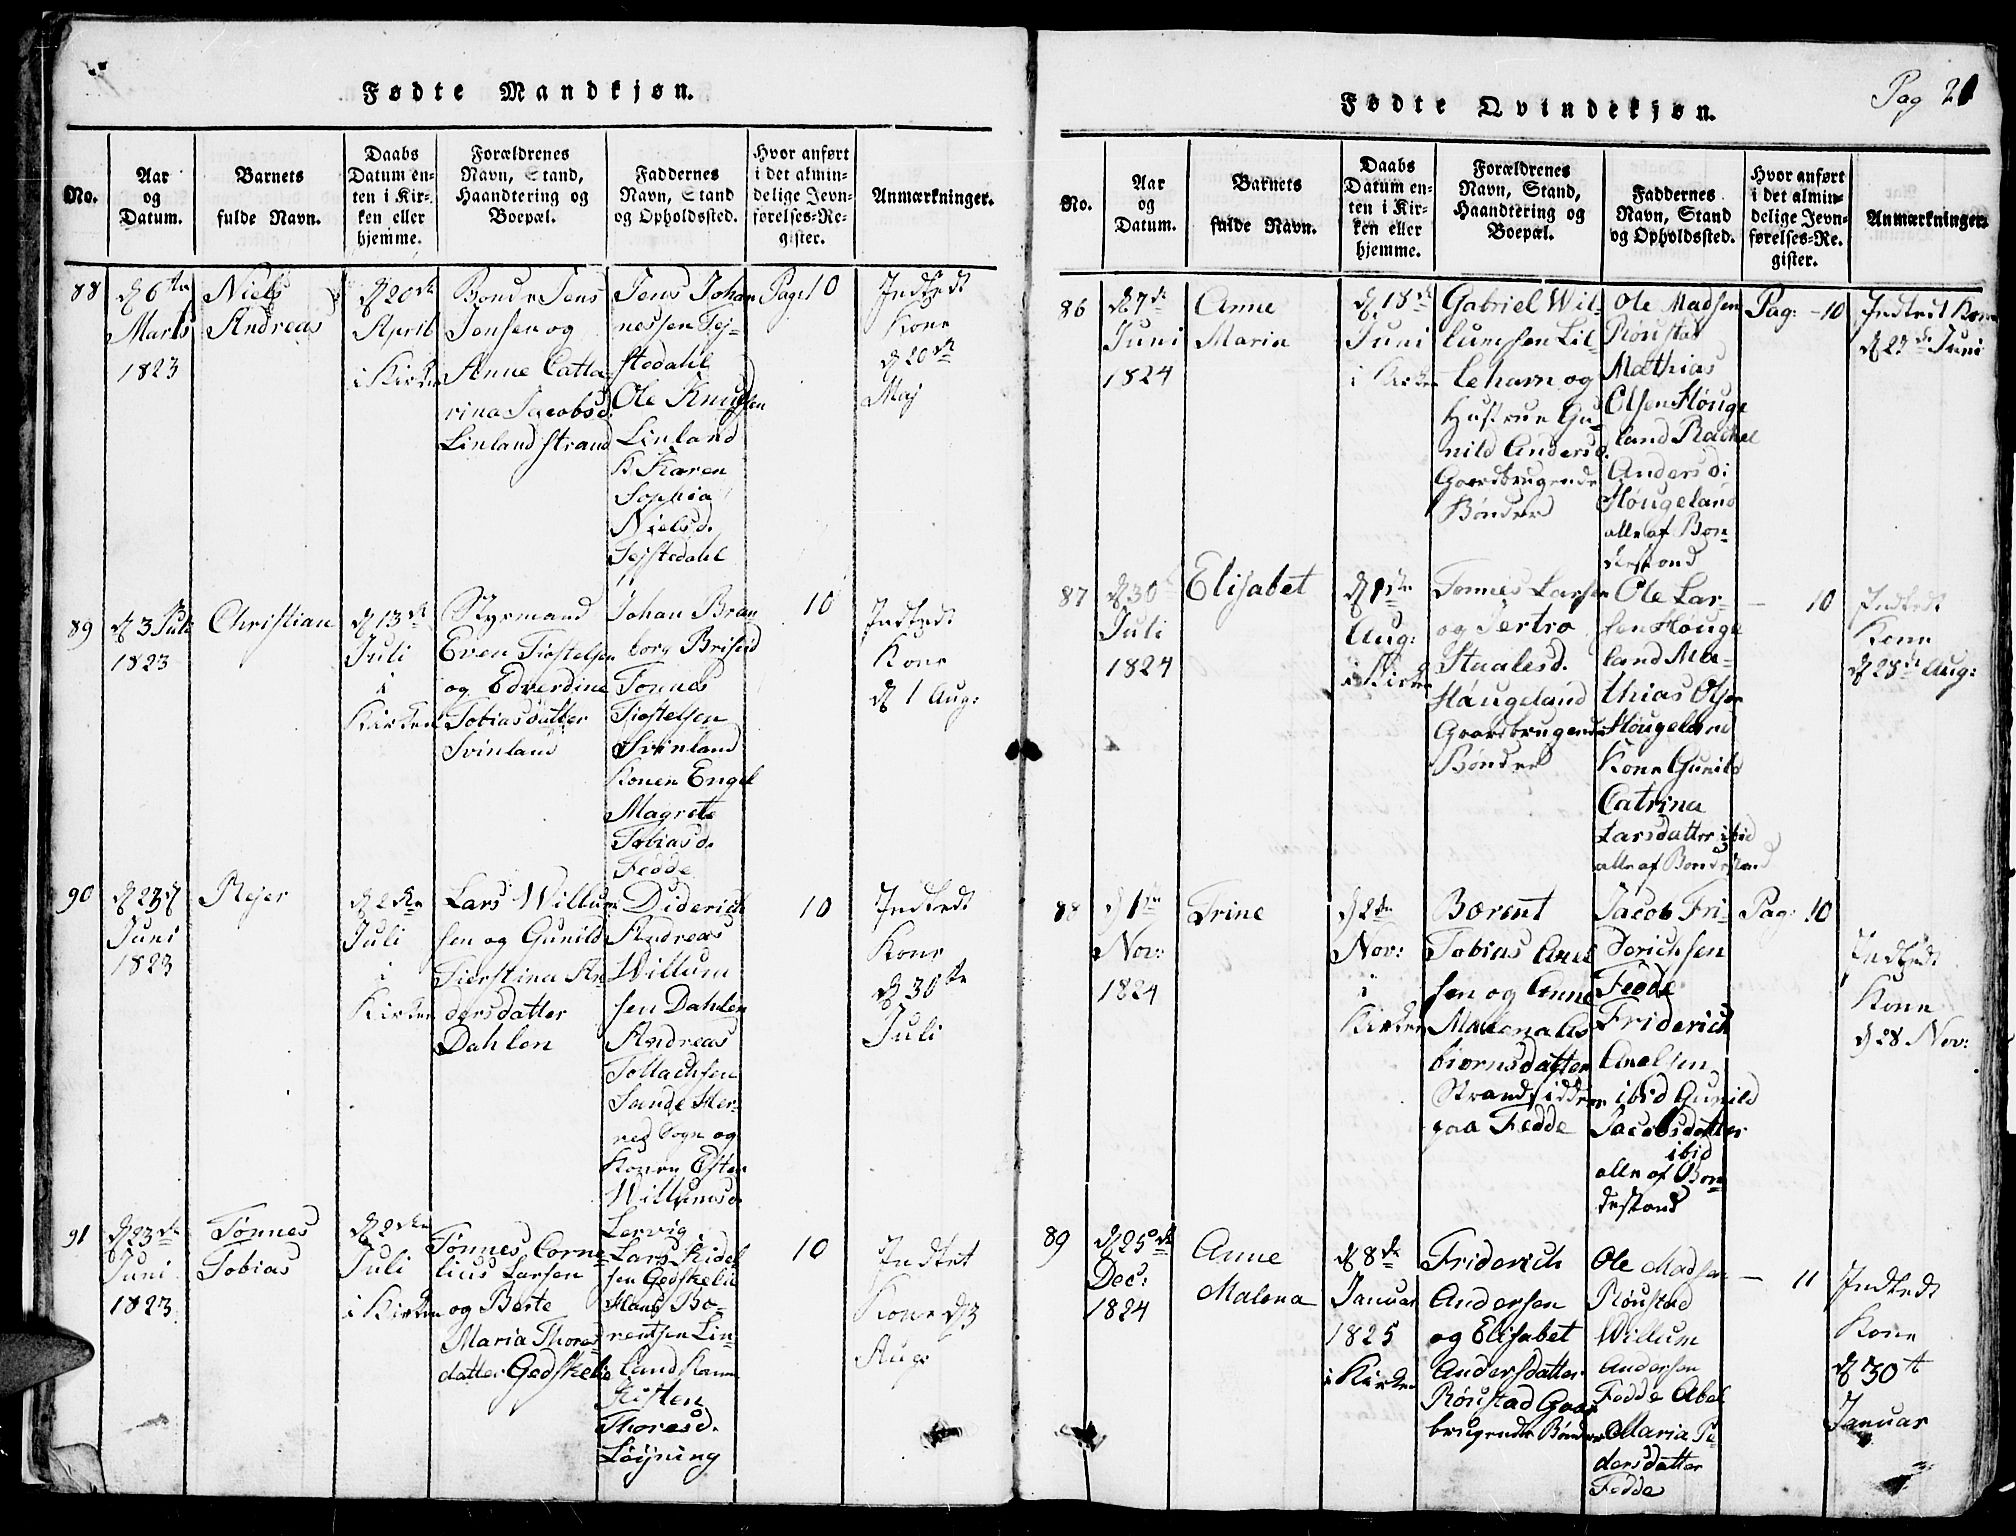 Fødte Mandkjøn.
No.
Aar
og
Datum.
Barnets
fulde Navn.
Daabs
Datum en-
ten i Kir-
ken eller
hjemme.
Forældrenes
Navn, Stand,
Haandtering og
Boepæl.
Faddernes
Navn, Stand
og Opholdssted.
Hvor anført
i det almin-
delige Jevn-
førelses-Re-
gister.
Anmærkninger.
88
d 6te
Marts
1823
Niels
Andreas
d 20de
April
i Kirken
Bonde Jens
Jensen og
Anne Catta-
rina Jacobsd.
Linland strand
Jens Johan
nessen Fej-
stedahl
Ole Knudsen
Linland
K Karen
Sophia
Nielsd.
Fejstedahl
Pag: 10
Indledt
Kone
d 20de
Maj
89
d 3 Juli
1823
Christian
d 13de
Juli
i
Kirken
Styrmand
Even Tiøstelsen
og Edverdine
Tobiasdatter
Svinland
Johan Bran
borg Briseid
Tønnes
Tiøstelsen
Svinland
Konen Engel
Magrete
Tobiasd.
Fedde
10
Indledt
Kone
d 1 Aug:
90
d 23d
Juni
1823
Rejer
d 2den
Juli
i
Kirken
Lars Willum
sen og Gunild
Tierstina An
dersdatter
Dahlen
Diderich
Andreas
Willum
sen Dahlen
Andreas
Tollachsen
Sande Her-
red Sogn og
Konen Ester
Willumsd.
Lervig
10
Indledt
Kone
d 30te
Juli
91
d 23de
Juni
1823
Tønnes
Tobias
d 2den
Juli
i Kirken
Tønnes Corne-
lius Larsen
og Berte
Maria Thores
datter Gedskelie
Lars Kidel
sen Gedskelie
Hans Be-
rentsen Lin-
land Kone
Kisten
Thoresd.
Løyning
10
Indledt
Kone d 3
Aug:
Pag 21
Fødte Qvindekjøn.
No.
Aar
og
Datum.
Barnets
fulde Navn.
Daabs
Datum en-
ten i Kir-
ken eller
hjemme.
Forældrenes
Navn, Stand,
Haandtering og
Boepæl.
Faddernes
Navn, Stand
og Opholdssted.
Hvor anført
i det almin-
delige Jevn-
førelses-Re-
gister.
Anmærkninger.
86
d 7de
Juni
1824
Anne
Maria
d 18de
Juni
i Kirken
Gabriel Wil-
lumsen Lil-
leham og
Hustrue Gu-
nild Andersd.
Gaardbrugende
Bønder
Ole Madsen
Røustad
Mathias
Olsen Høuge
land Rachel
Andersd:
Høugeland
alle af Bon-
destand
Pag: 10
Indledt Kone
d 27de Juni
87
d 30
Juli
1824
Elisabet
d 1ste
Aug:
i Kirken
Tønnes Larsen
og Sertro
Staalesd.
Høugeland
Gaardbrugende
Bønder
Ole Lar-
sen Høuge
land Ma-
thias Olsen
Høugeland
Kone Gunild
Catrina
Larsdatter ibid
alle af Bondestand
— 10
Indledt
Kone
d 28de Aug:
88
d 1ste
Nov:
1824
Trine
d 2den
Nov:
i
Kirken
Bærent
Tobias Axel
sen og Anne
Malena As
biørnsdatter
Strandsiddere
paa Fedde
Jacob Fri-
derichsen
Fedde
Friderich
Axelsen
ibid Gunild
Jacobsdatter
ibid
alle af Bon
destand
Pag: 10
Indledt
Kone
d 28 Nov:
89
d 25de
Dec:
1824
Anne
Malena
d 8de
Januar
1825
i Kirken
Friderich
Andersen
og Elisabet
Andersdatter
Røustad Gaar
brugende Bønder
Ole Madsen
Røustad
Willum
Andersen
Fedde Abel
Maria Pe-
dersdatter
Fedde
— 11
Indledt
Kone
d 30te
Januar